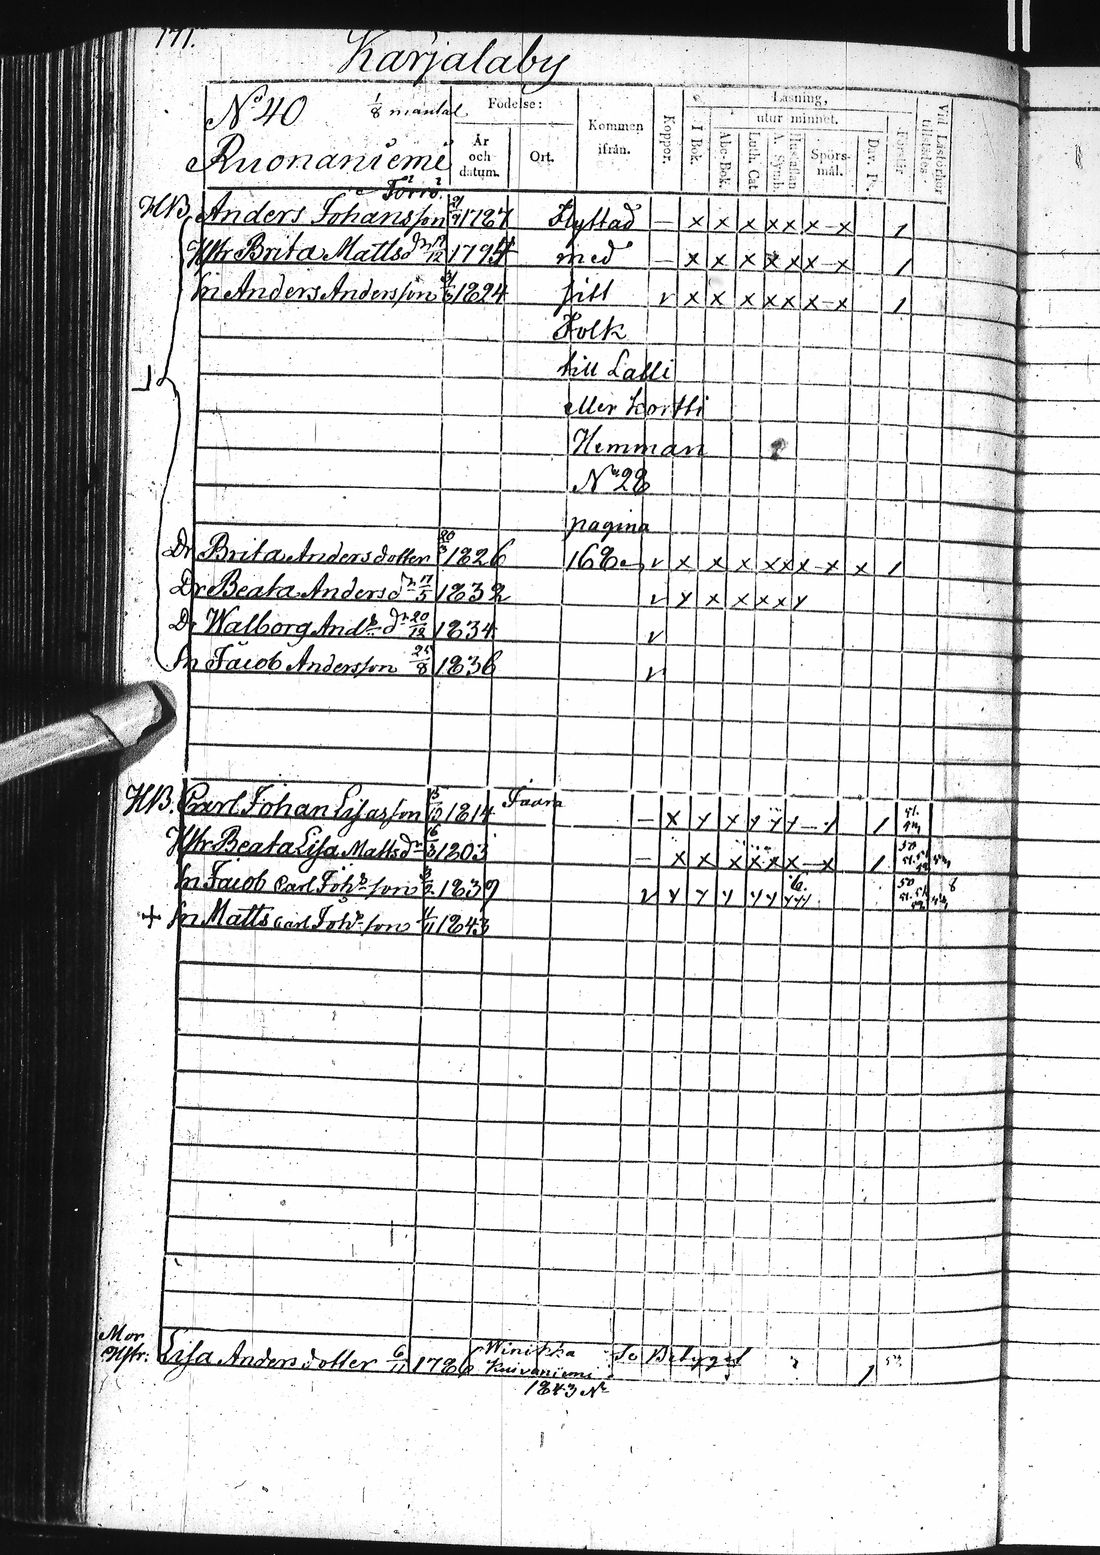 171.
Karjalaby
No 40 1/8 mantal
Ruonaniemi
Födelse:
År och datum.
Ort.
Kommen ifrån.
Koppor.
Läsning,
utur minnet.
I Bok.
Abc-Bok.
Luth. Cat.
A. Symb.
Hustaflan
Spörsmål.
Dav. Ps.
Förstår
Vid Läsförhör tillstädes
Törrö
HB. Anders Johansson 1787 Flyttad — x x x x x x - x 1
Hstr Brita Mattsdr 17/12 1794 med — x x x x x x - x 1
Sn Anders Andersson 1824 sitt v x x x x x x - x 1
Folk
till Lalli
eller Kortti
Hemman
No 28
pagina
Dr Brita Andersdotter 20/3 1826 168. v x x x x x x - x x 1
Dr Beata Andersdr 17/5 1832 v y x x x x y
Dr Walborg Andrs dr 20/12 1834 v
Sn Jacob Andersson 25/8 1836 v
HB. Carl Johan Lisasson 1814 — x y x y y y - y 1
Hstr Beata Lisa Mattsdr 1803 — x x x x x x - x 1
Sn Jacob Carl Johs son 1839 v y y y y y y y y 8
+ Sn Matts Carl Johs son 1843
Mor
Hstr. Lisa Andersdotter 6/11 1786 Winikka Se Betyget 1
Kuivaniemi
1843 No